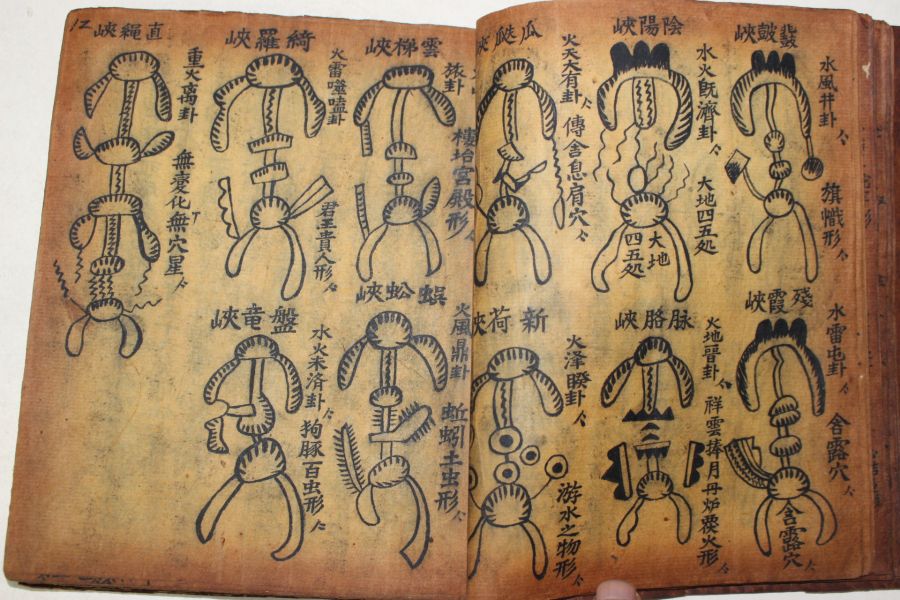 鼓峽
水風井卦
旗幟形
陰陽峽
水火旣濟卦
大地四五処
大地
四五処
瓜瓞峽
火天大有卦
傳舍息肩穴
殘霞峽
水雷屯卦
含露穴
含露穴
脉胳峽
火地晋卦
祥雲捧月丹炉
火形
新荷峽
火澤睽卦
游水之物形
雲梯峽
旅卦
樓坮宮殿形
綺羅峽
火雷噬嗑卦
君王貴人形
直繩峽
重火离卦
無憂化無穴星
蜈蚣峽
火風鼎卦
蚯蚓土虫形
盤竜峽
水火未済卦
狗豚百虫形
12